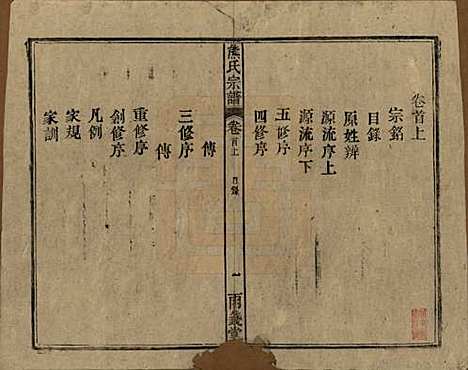 卷首上
宗銘
目錄
原姓辨
源流序上
源流序下
五修序
四修序
氏宗譜
卷首上
目錄
一
傳
三修序
傳
重修序
創修序
凡例
家規
家訓